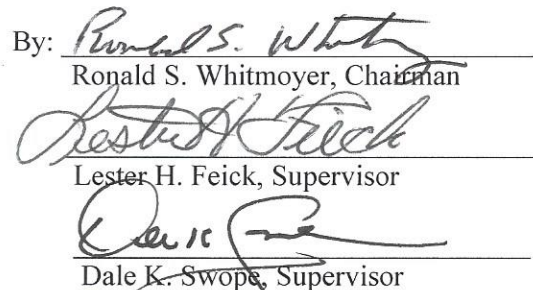 By: Ronald S. Whitmoyer
Ronald S. Whitmoyer, Chairman
Lester H. Feick
Lester H. Feick, Supervisor
Dale K.
Dale K. Swope, Supervisor